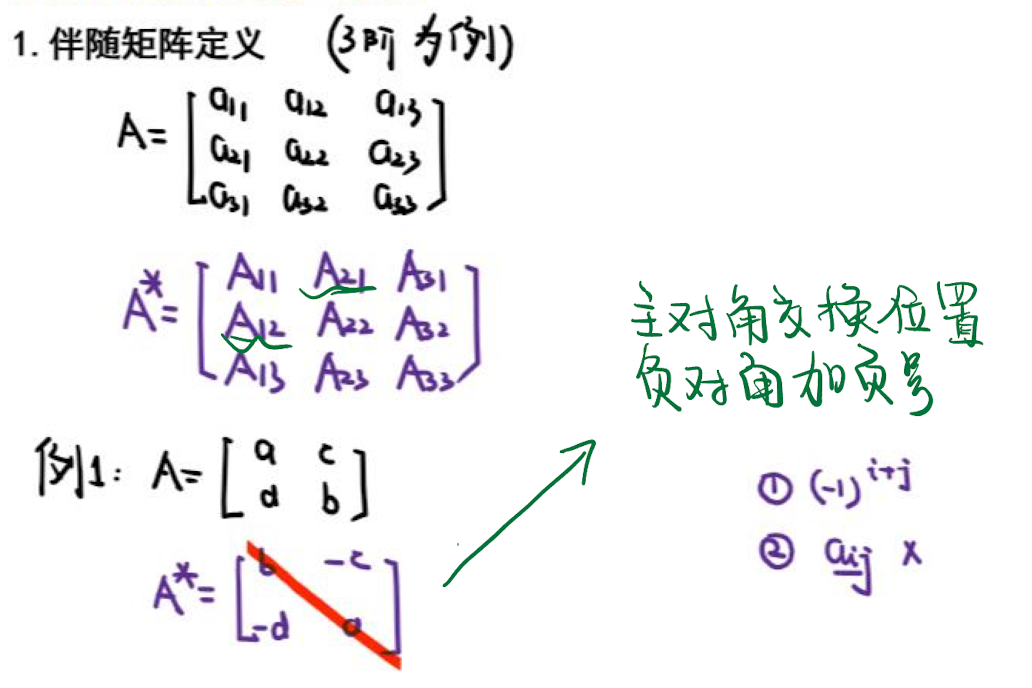 1. 伴随矩阵定义 (3阶为例)
A= [a11 a12 a13
a21 a22 a23
a31 a32 a33]
A*= [A11 A21 A31
A12 A22 A32
A13 A23 A33]
主对角交换位置
负对角加负号
例1: A= [a c
d b]
A*= [b -c
-d a]
① (-1)^{i+j}
② aij ×